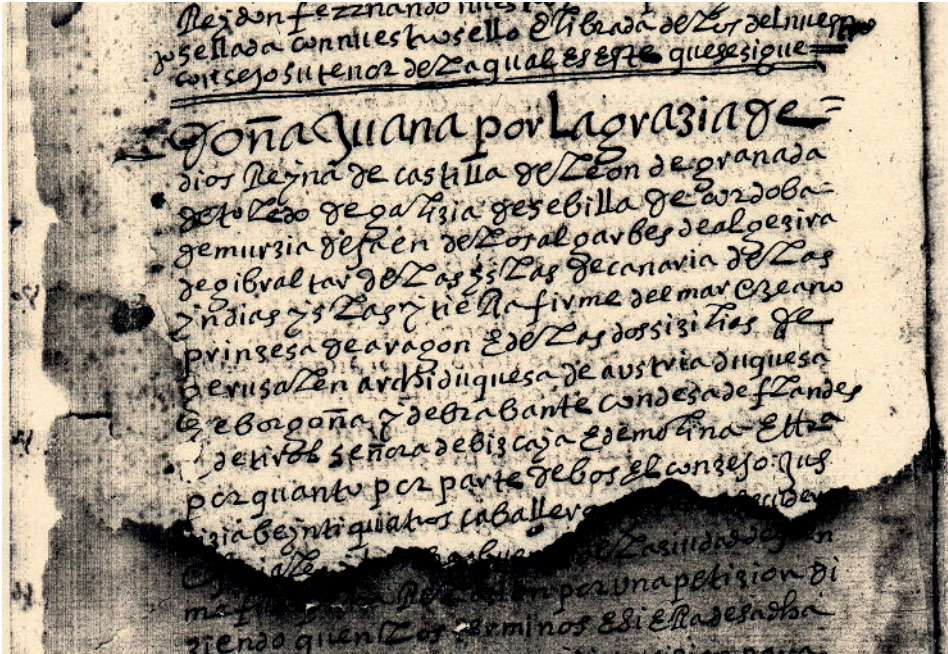 Rey don fezznando nuest
do sellada con nuestro sello E librada de Los del nuestro
consejo su tenor de La qual Es Este que se sigue
doña Juana por La grazia de
dios Reyna de castilla de Leon de granada
de toLedo de gaLizia de sebilla de cordoba
de murzia de Jaen de Los algarbes de algezira
de gibraltar de Las ysLas de canaria de Las
yndias ysLas y tieRa firme del mar ozeano
prinzesa de aragon E de Las dos sizilias de
JerusaLen archiduquesa de austria duquesa
de borgoña y de brabante condesa de fLandes
de tirol señora de bizcaya E de molina Ettza
por quanto por parte de bos El conzejo Jus
tizia beynti quatros caballero
La siudad de Jaen
por una petizion di
ziendo quen Los terminos E sieRa de sa dha